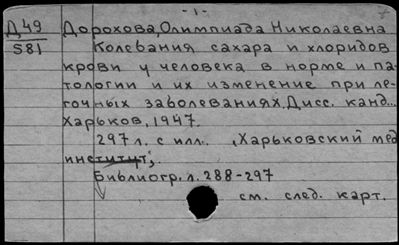 - 1 -
Д 49
581
Дорохова, Олимпиада Николаевна
Колебания сахара и хлоридов
крови у человека в норме и па-
тологии и их изменение при ле-
гочных заболеваниях. Дисс. канд..
Харьков, 1947.
297 л. с илл. , Харьковский мед
институт,
Библиогр. л. 288-297
см. след. карт.